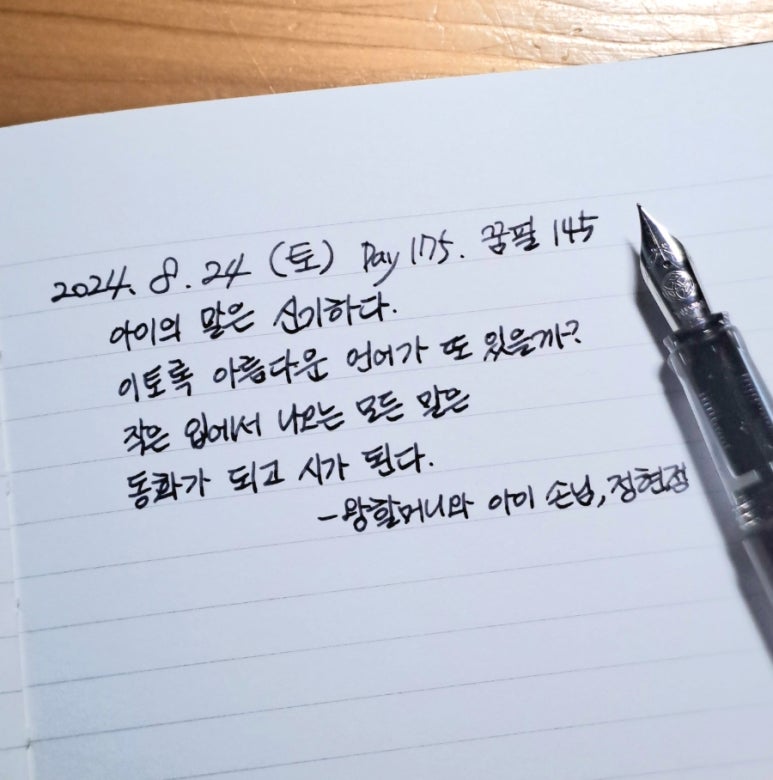 2024. 8. 24 (토) Day 175. 꿈필 145
아이의 말은 신기하다.
이토록 아름다운 언어가 또 있을까?
작은 입에서 나오는 모든 말은
동화가 되고 시가 된다.
-왕할머니와 아이 손님, 정현정